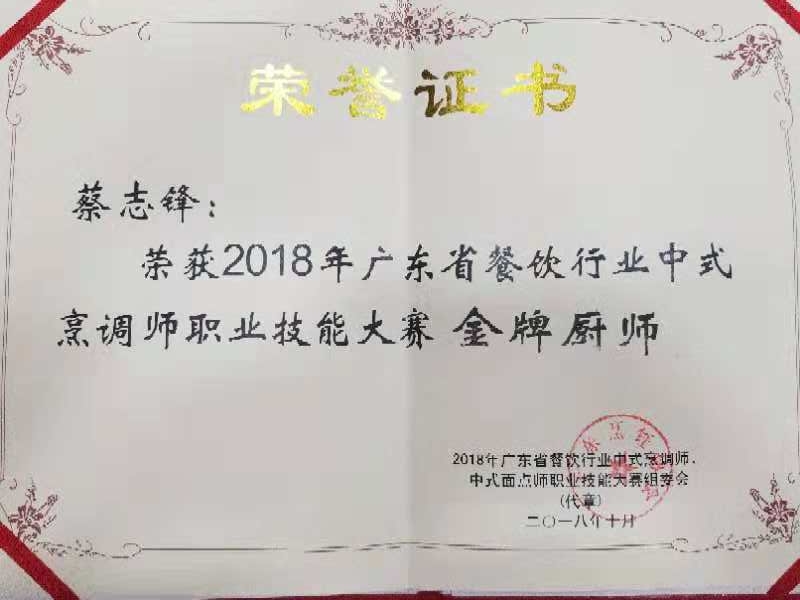 荣誉证书
蔡志锋：
荣获2018年广东省餐饮行业中式
烹调师职业技能大赛 金牌厨师
2018年广东省餐饮行业中式烹调师、
中式面点师职业技能大赛组委会
(代章)
二〇一八年十月